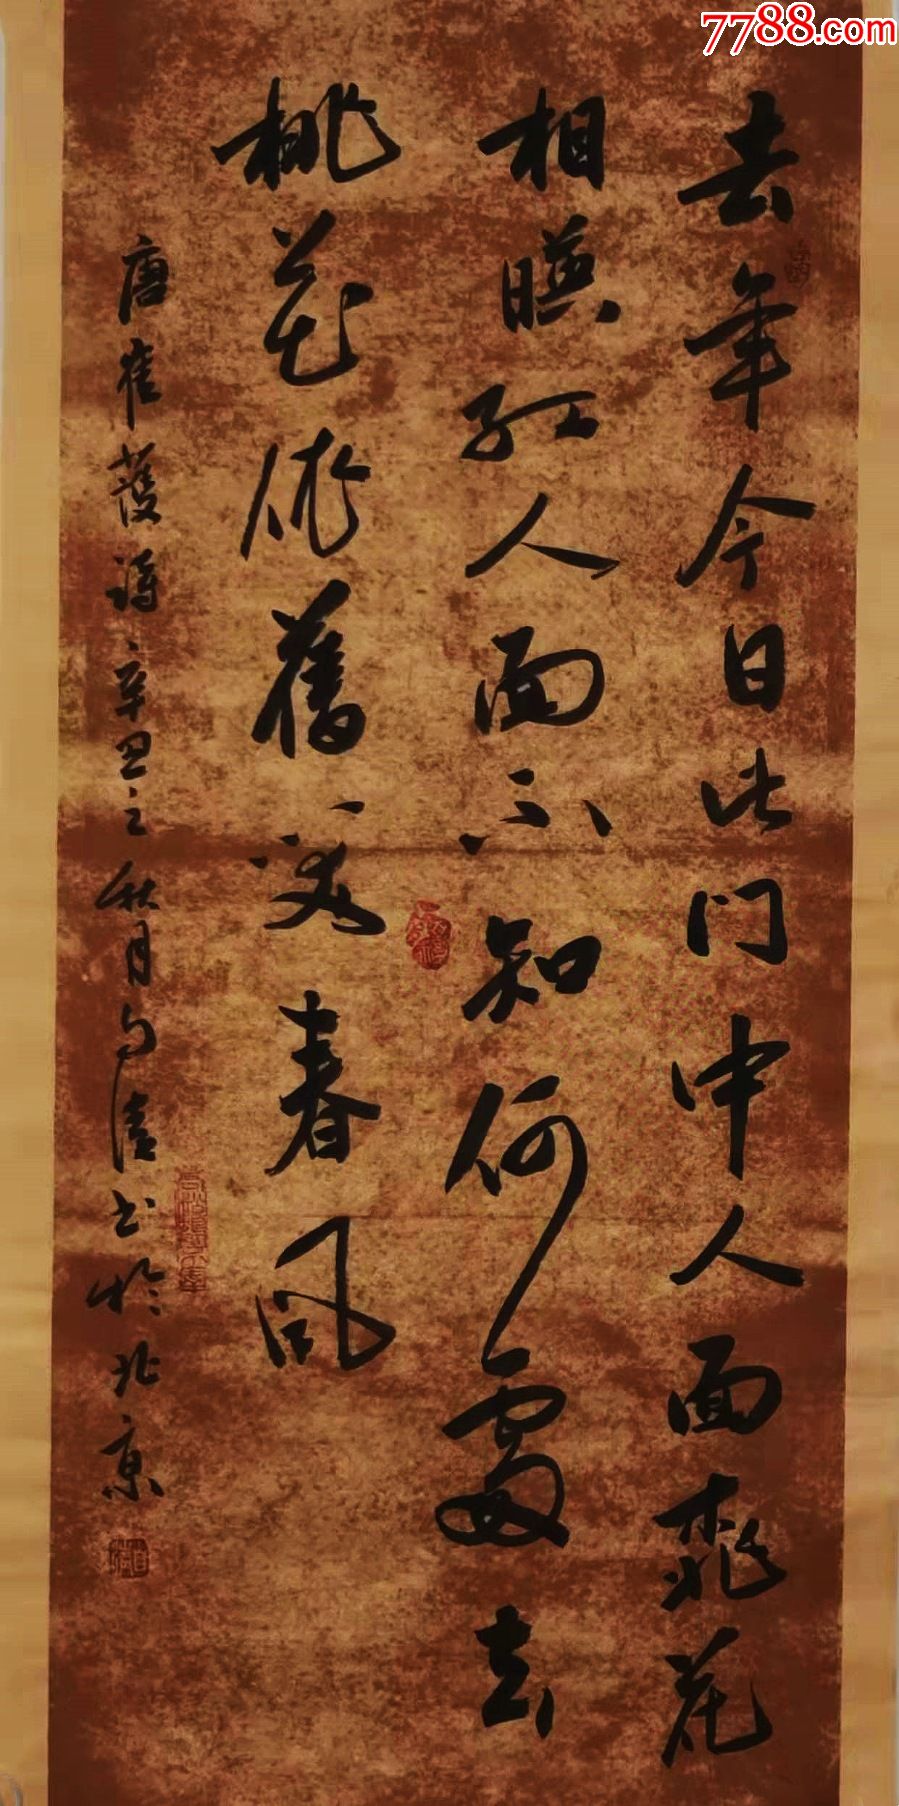 7788.com
去年今日此门中人面桃花
相暎红人面不知何處去
桃花依舊笑春风
唐崔護詩辛丑之秋月书於北京